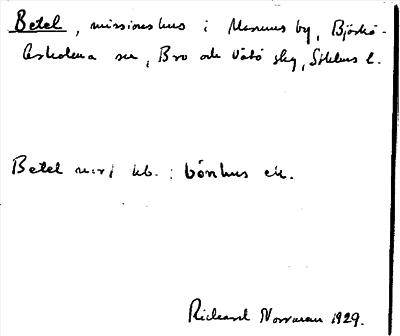 Betel, missionshus i Marums by, Björkö-
Arholma sn, Bro och Vätö skg, Sthlms l.
Betel kb. : bönhus etc.
Rickard Norrman 1929.